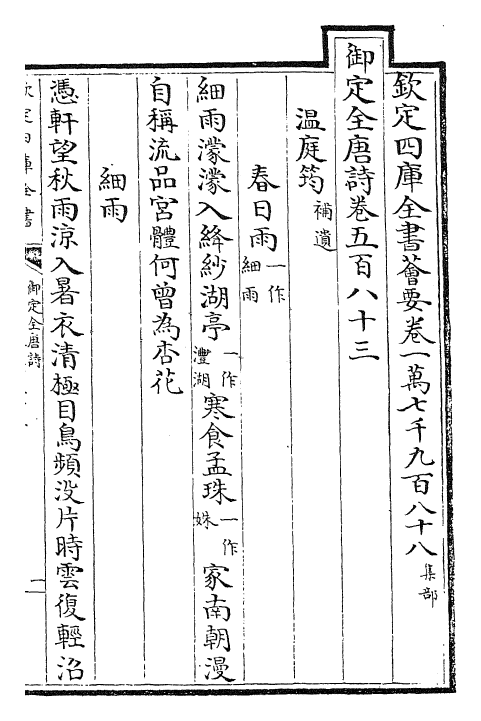 欽定四庫全書薈要卷一萬七千九百八十八 集部
御定全唐詩卷五百八十三
溫庭筠 補遺
春日雨 一作細雨
細雨濛濛入絳紗湖亭 一作灃湖 寒食孟珠 一作姝 家南朝漫
自稱流品宮體何曾為杏花
細雨
憑軒望秋雨涼入暑衣清極目鳥頻沒片時雲復輕沿
欽定四庫全書 御定全唐詩 二